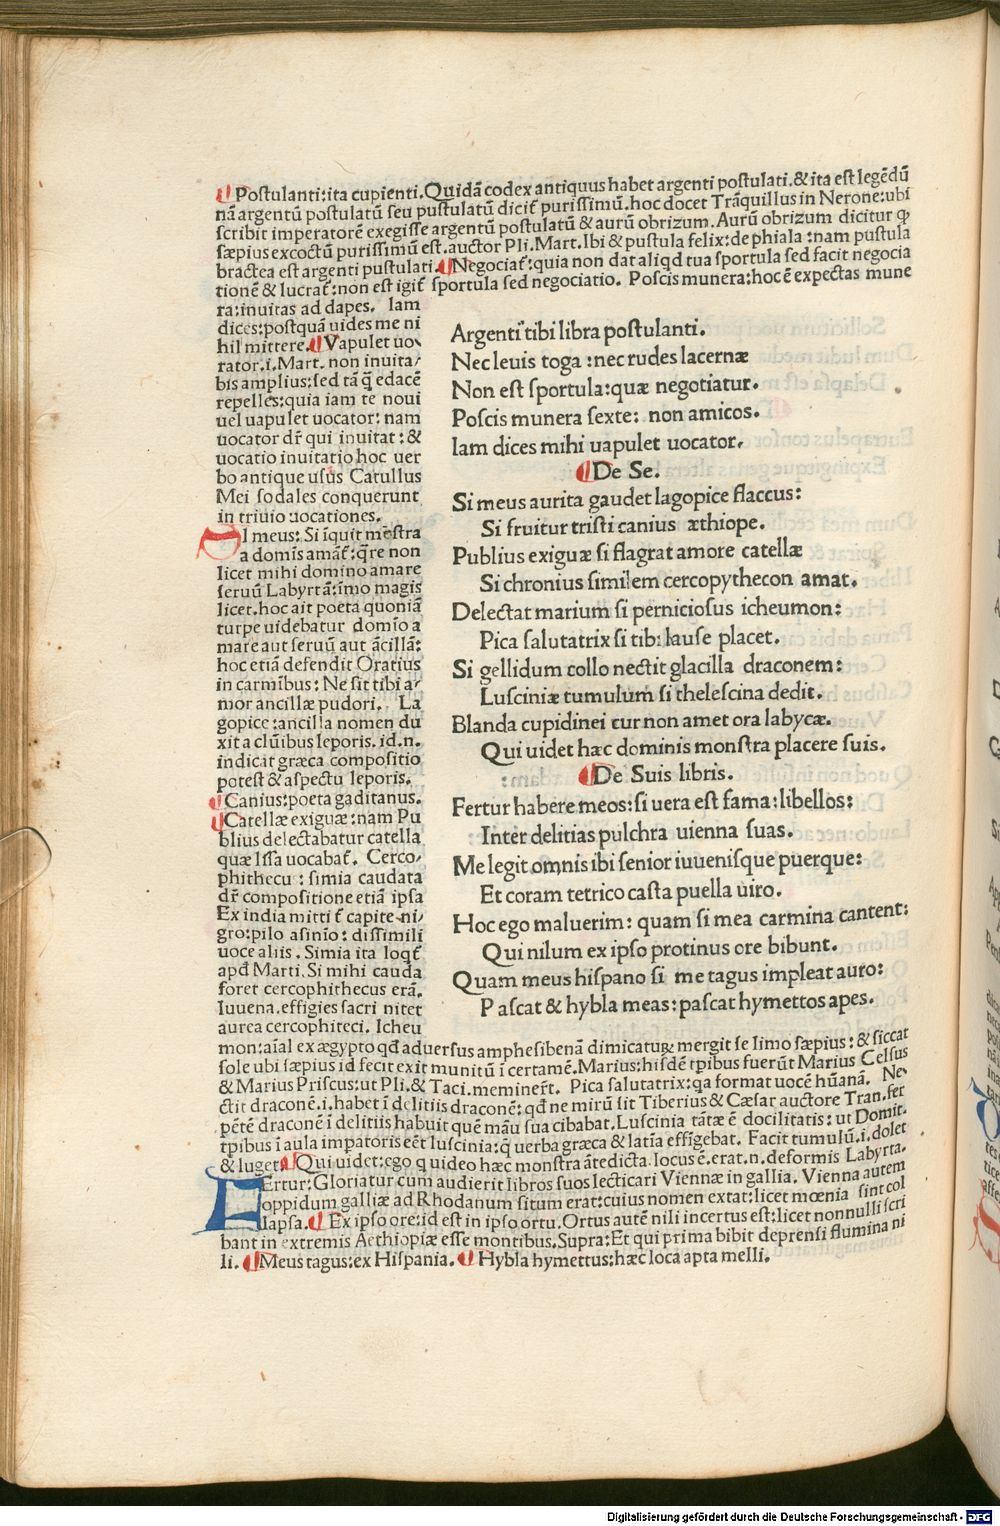 Postulanti:ita cupienti.Quidā codex antiquus habet argenti postulati.&ita est legēdū
nā argentū postulatū seu pustulatū dicit᷑ purissimū.hoc docet Trāquillus in Nerone:ubi
scribit imperatorē exegisse argentū postulatū & aurū obrizum. Aurū obrizum dicitur ꝙ
sæpius excoctū purissimū est.auctor Pli.Mart.Ibi & pustula felix:de phiala :nam pustula
bractea est argenti pustulati. Negociat᷑:quia non dat aliqd tua sportula sed facit negocia
tionē & lucrat᷑:non est igit᷑ sportula sed negociatio. Poscis munera:hoc ē expectas mune
ra:inuitas ad dapes. Iam
dices:postquā uides me ni
hil mittere. Vapulet uo-
rator.i.Mart. non inuita/
bis amplius:sed tā q̄ edacē
repelles:quia iam te noui
uel uapulet uocator: nam
uocator dr̄ qui inuitat : &
uocatio inuitatio hoc uer
bo antique usus Catullus
Mei sodales conquerunt
in triuio uocationes.
Argenti tibi libra postulanti.
Nec leuis toga :nec rudes lacernæ
Non est sportula:quæ negotiatur.
Poscis munera sexte: non amicos.
Iam dices mihi uapulet uocator.
De Se.
Si meus aurita gaudet lagopice flaccus:
Si fruitur tristi canius æthiope.
Publius exiguæ si flagrat amore catellæ
Si chronius similem cercopythecon amat.
Delectat marium si perniciosus icheumon:
Pica salutatrix si tibi lause placet.
Si gellidum collo nectit glacilla draconem:
Lusciniæ tumulum si thelescina dedit.
Blanda cupidinei cur non amet ora labycæ.
Qui uidet hæc dominis monstra placere suis.
De Suis libris.
Fertur habere meos:si uera est fama:libellos:
Inter delitias pulchra uienna suas.
Me legit omnis ibi senior iuuenisque puerque:
Et coram tetrico casta puella uiro.
Hoc ego maluerim: quam si mea carmina cantent:
Qui nilum ex ipso protinus ore bibunt.
Quam meus hispano si me tagus impleat auro:
Pascat & hybla meas:pascat hymettos apes.
SI meus: Si īquit mēstra
a domīs amāt᷑:q̄re non
licet mihi domino amare
seruū Labyrtā:īmo magis
licet.hoc ait poeta quoniā
turpe uidebatur domīo a
mare aut seruū aut ācillā:
hoc etiā defendit Oratius
in carmībus: Ne sit tibi a/
mor ancillæ pudori. La
gopice :ancilla nomen du
xit a clūibus leporis. id.n.
indicat græca compositio
potest & aspectu leporis.
Canius:poeta gaditanus.
Catellæ exiguæ :nam Pu
blius delectabatur catella
quæ Issa uocabat᷑. Cerco/
phithecu : simia caudata
dr̄ compositione etiā ipsa
Ex india mitti t᷑ capite ni/
gro:pilo asinīo: dissimili
uoce aliis . Simia ita loqt᷑
apd Marti. Si mihi cauda
foret cercophithecus erā.
Iuuena.effigies sacri nitet
aurea cercophiteci. Icheu
mon:aīal ex ægypto qd aduersus amphesibenā dimicatuꝝ mergit se limo sæpius : & siccat
sole ubi sæpius id fecit exit munitū ī certamē.Marius:hisdē tp̄ibus fuerūt Marius Celsus
& Marius Priscus:ut Pli.& Taci.meminer̄t. Pica salutatrix:qa format uocē hūanā. Ne
ctit draconē.i.habet ī delitiis draconē: qd ne mirū sit Tiberius & Cæsar auctore Tran.ser
pētē draconē ī delitiis habuit quē māu sua cibabat.Luscinia tātæ ē docilitatis: ut Domit.
tp̄ibus ī aula impatoris eēt luscinia:q uerba græca & latīa effīgebat. Facit tumulū.i.dolet
& luget. Qui uidet:ego q uideo hæc monstra ātedicta.locus ē.erat.n.deformis Labyrta.
FErtur: Gloriatur cum audierit libros suos lecticari Viennæ in gallia. Vienna autem
oppidum galliæ ad Rhodanum situm erat:cuius nomen extat:licet mœnia sint col
lapsa. Ex ipso ore:id est in ipso ortu. Ortus autē nili incertus est:licet nonnulli scri
bant in extremis Aethiopiæ esse montibus.Supra:Et qui prima bibit deprensi flumina ni
li. Meus tagus:ex Hispania. Hybla hymettus:hæc loca apta melli.
Digitalisierung gefördert durch die Deutsche Forschungsgemeinschaft - DFG